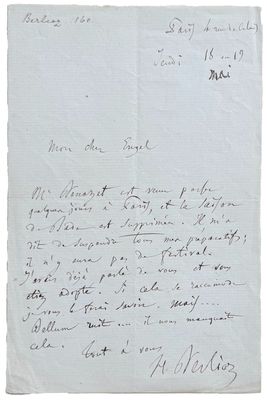 Berlioz 1860
Paris 4 rue de Calais
Jeudi 18 ou 19
Mai
Mon cher Engel
Mr Benazet est venu passer
quelques jours à Paris, et la saison
de Bade est supprimée. Il m'a
dit de suspendre tous mes préparatifs;
il n'y aura pas de festival.
J'avais déjà parlé de vous et
étiez adopté. Si cela se raccommode
je vous le ferai savoir. mais....
Bellum ruit il nous manquait
cela.
tout à vous
H. Berlioz